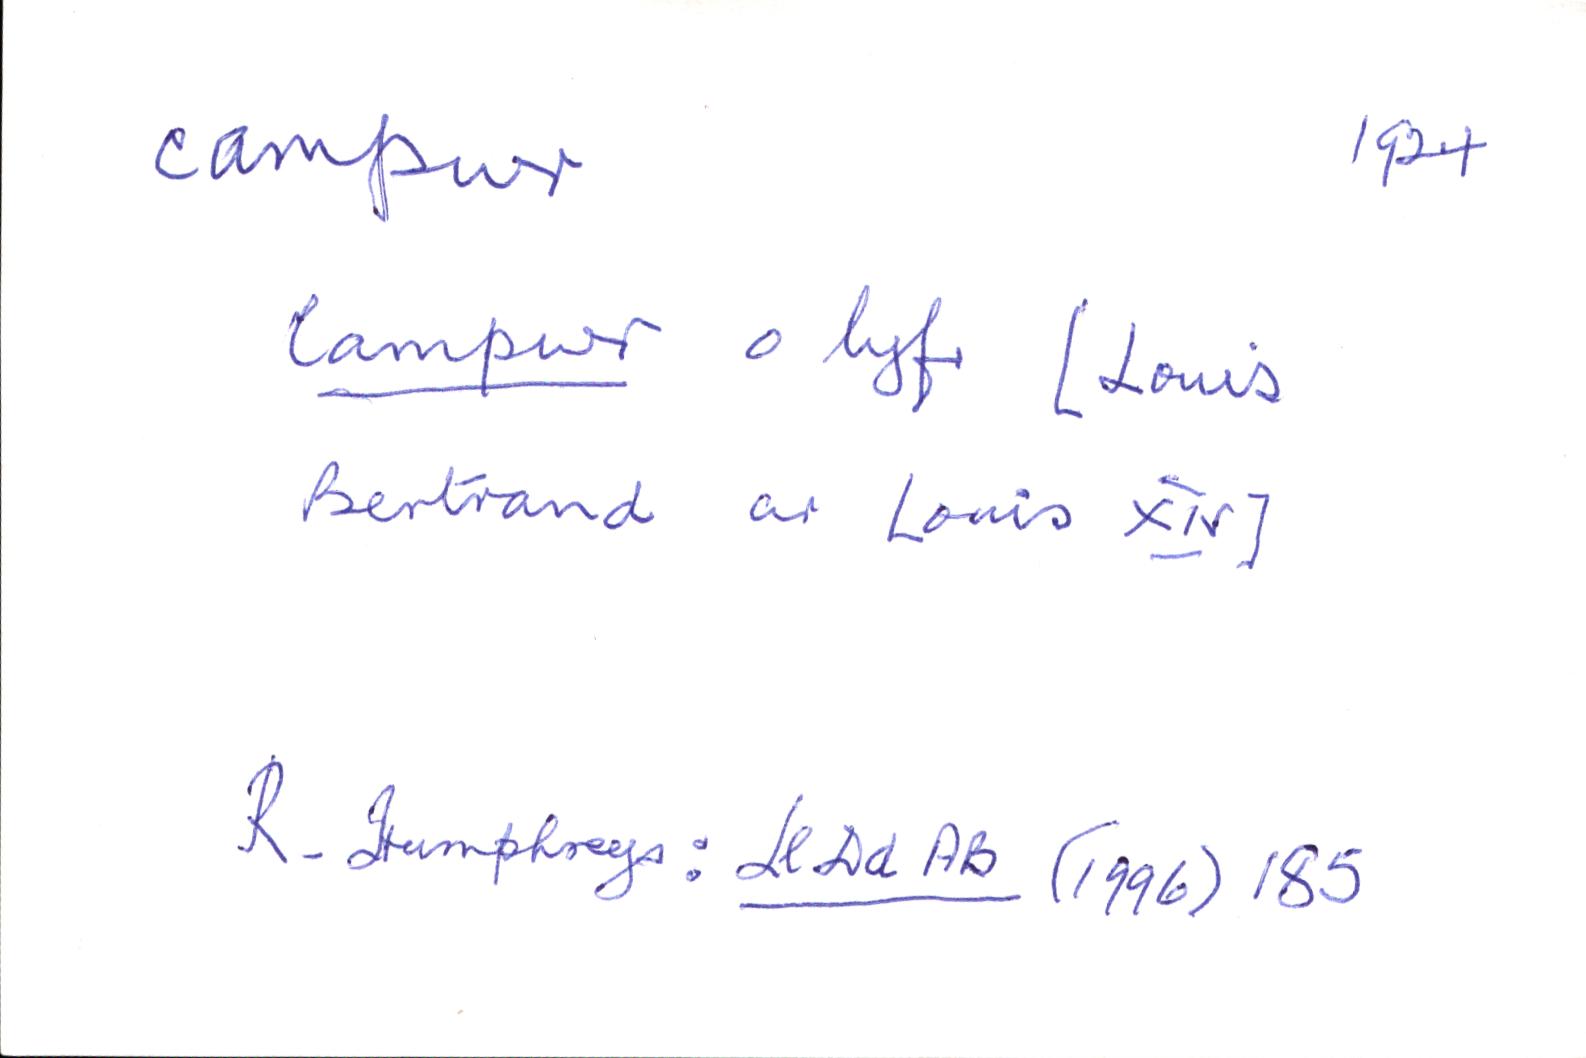 campwr 1924
Campwr o lyfr [Louis
Bertrand ar Louis XIV]
R. Humphreys: Ll Dd AB (1996) 185